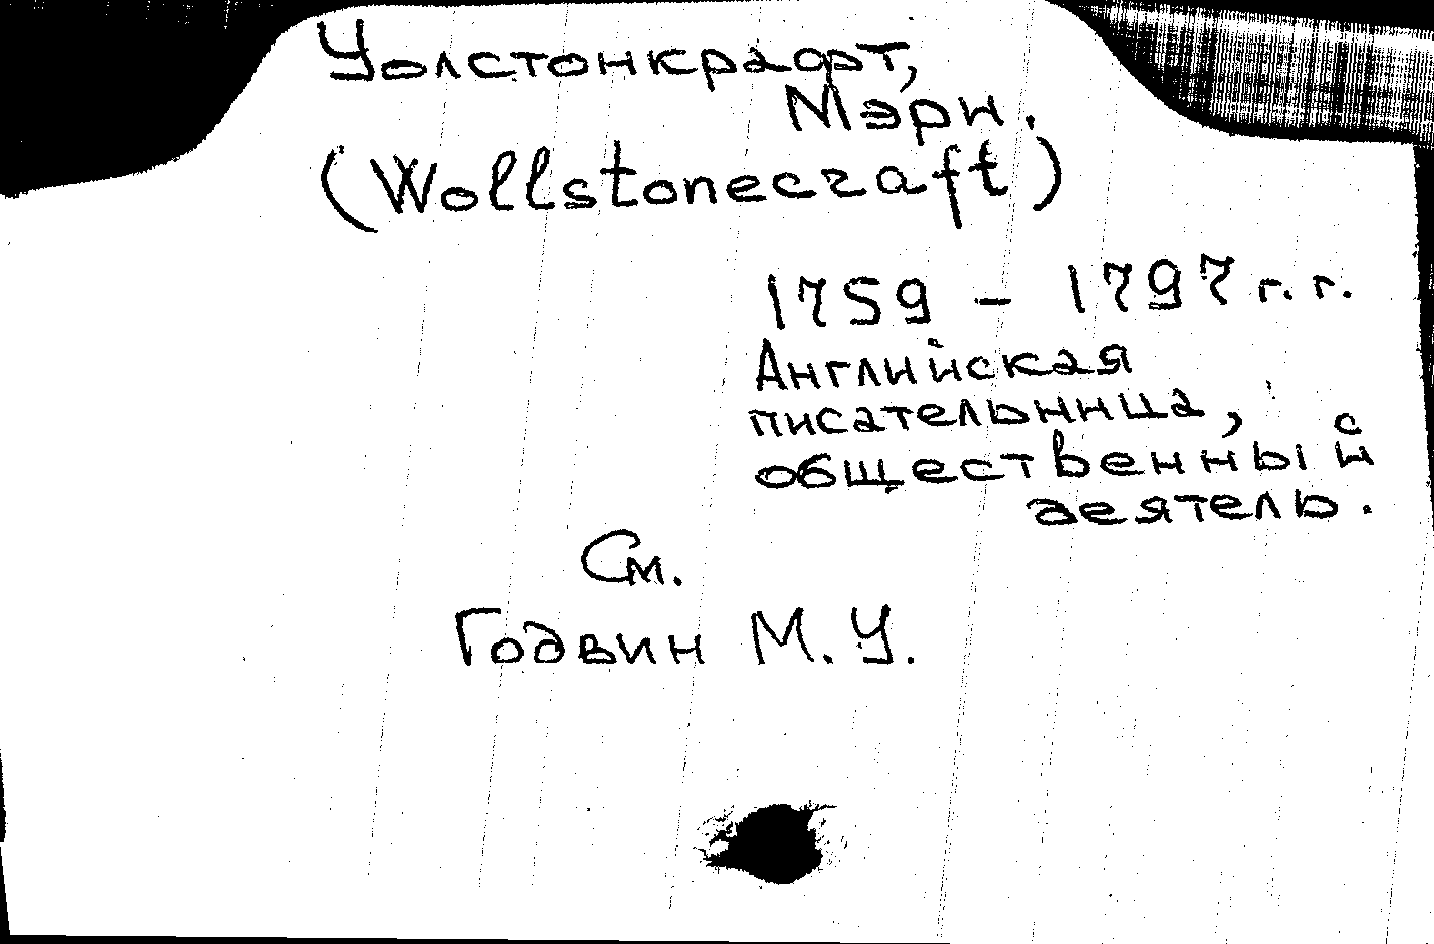 Уолстонкрафт,
Мэри.
(Wollstonecraft)
1759 - 1797 г.г.
Английская
писательница,
общественный
деятель.
См.
Годвин М.У.